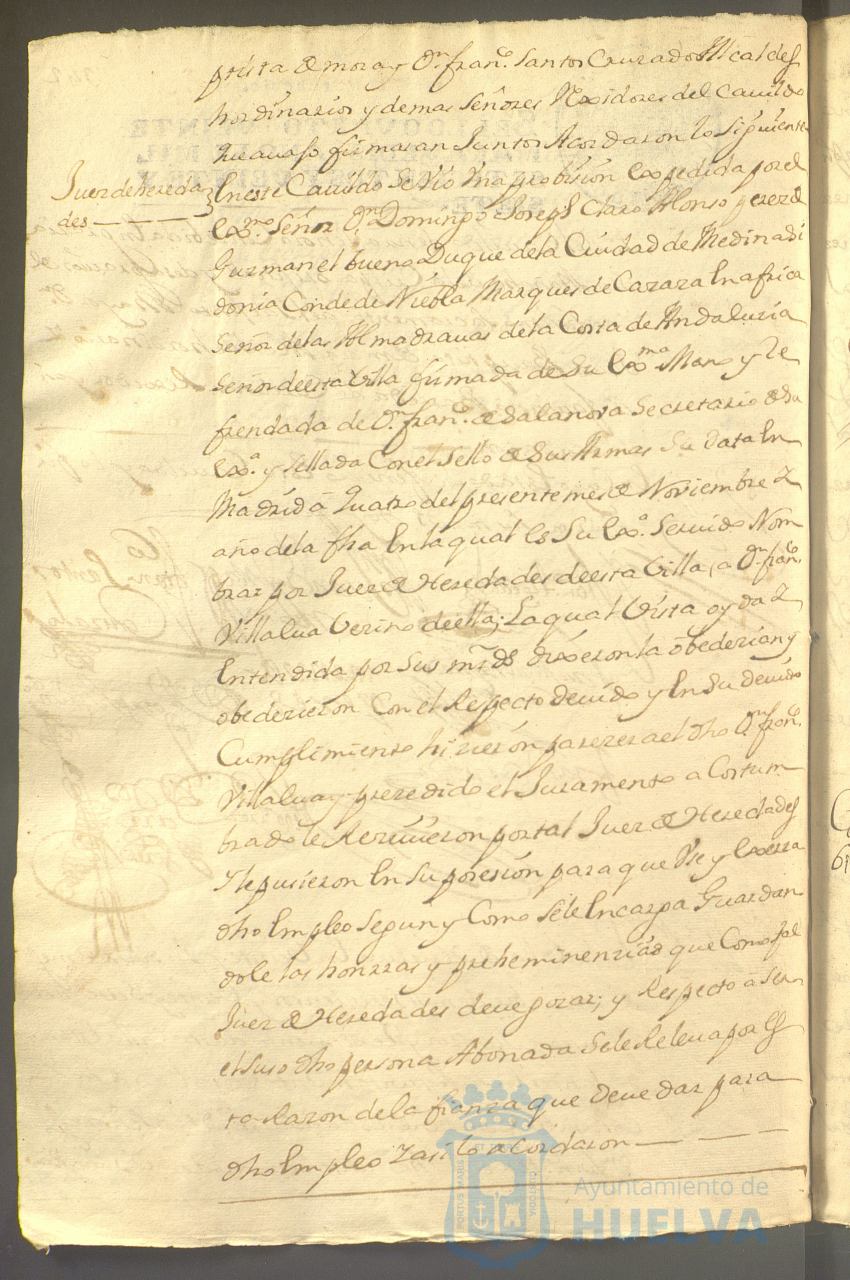 prista de mora y Dn. franco. santos Cruzado Alcaldes
hordinarios y demas señores Rexidores del Cavildo
que avajo firmaran Juntos Acordaron lo siguiente
Juez de hereda
des
En este Cavildo se vio Una probision expedida por el
Exmo. Señor Dn. Domingo Joseph Claro Alonso perez de
Guzman el bueno Duque de la Ciudad de Medina si
donia Conde de Niebla Marques de Cazaza En africa
Señor de las Almadravas de la Costa de Andaluzia
Señor de esta Villa firmada de Su Exma. Mano y Re
frendada de Dn. franco. de Salanova Secretario de Su
Exa. y sellada Con el Sello de Sus Armas Su data En
Madrid à quatro del presente mes de Noviembre y
año de la fha En la qual Es Su Exa. Servido Nom
brar por Juez de Heredades de esta Villa, a Dn. franco.
Villalva Vezino de ella; La qual Vista oyda y
Entendida por Sus mrds. dixeron la obedezian y
obedezieron Con el Respecto devido y En Su devido
Cumplimiento hizieron parezer a el dho Dn. franco.
Villalva y prezedido el Juramento a Costum
brado le Rezivieron por tal Juez de Heredades
Y le pusieron En Su posesión para que Use y Exerza
dho Empleo Segun y Como Se le Encarga Guardan
dole las honrras y preheminenzias que Como tal
Juez de Heredades deve gozar; y Respecto à Ser
el suso dho persona Abonada Se le Releva por Es
ta Razon de la fianza que deve dar para
dho Empleo Y asi lo acordaron
Ayuntamiento de
HUELVA